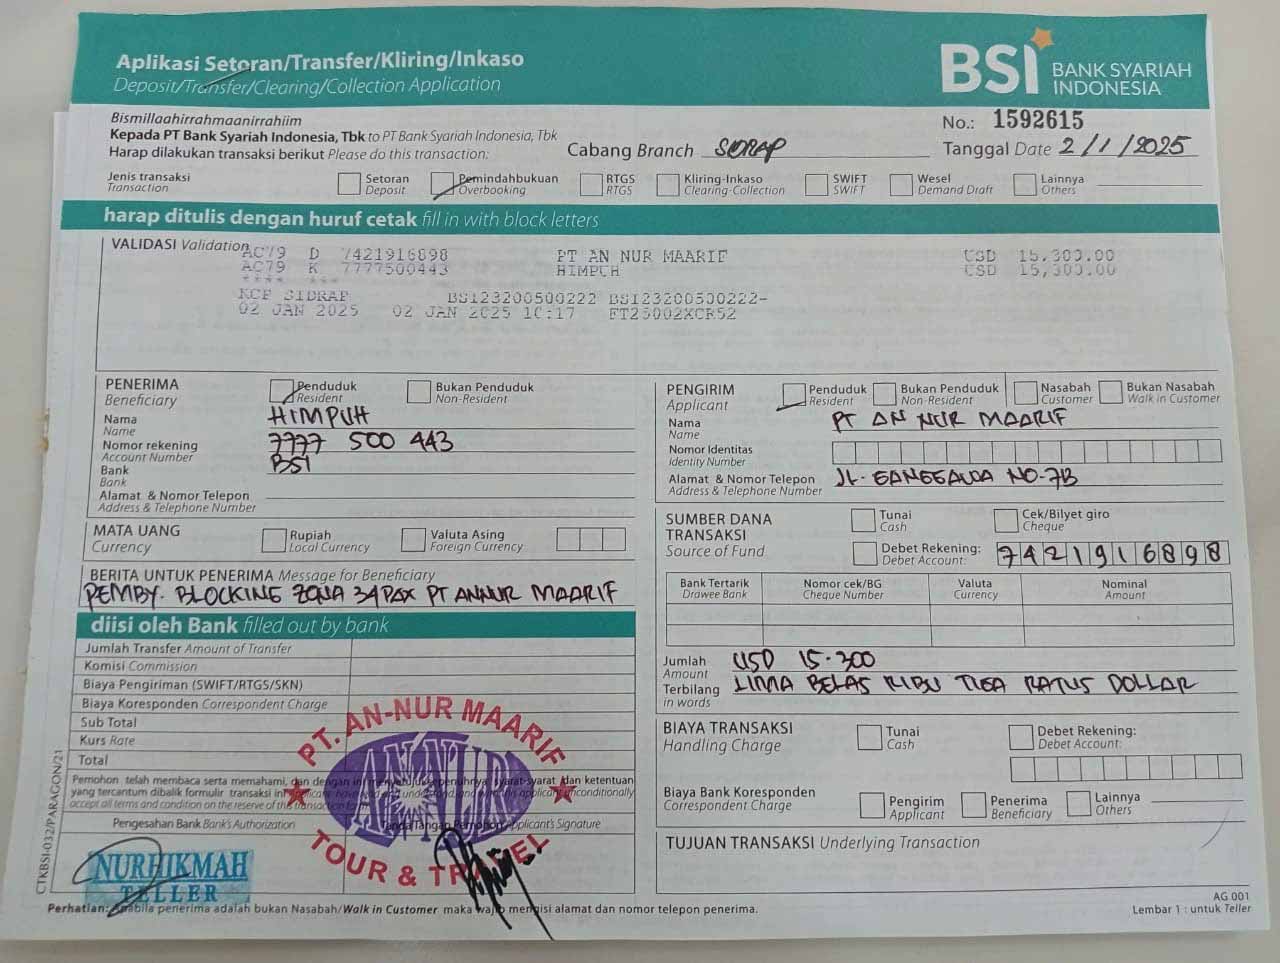 Aplikasi Setoran/Transfer/Kliring/Inkaso
Deposit/Transfer/Clearing/Collection Application
BSI BANK SYARIAH INDONESIA
Bismillaahirrahmaanirrahiim
Kepada PT Bank Syariah Indonesia, Tbk to PT Bank Syariah Indonesia, Tbk
Harap dilakukan transaksi berikut Please do this transaction:
Cabang Branch SIDRAP
No.: 1592615
Tanggal Date 2/1/2025
Jenis transaksi Transaction
Setoran Deposit
Pemindahbukuan Overbooking
RTGS RTGS
Kliring-Inkaso Clearing-Collection
SWIFT SWIFT
Wesel Demand Draft
Lainnya Others
harap ditulis dengan huruf cetak fill in with block letters
VALIDASI Validation
AC79 D 7421916898 PT AN NUR MAARIF USD 15,300.00
AC79 K 7777500443 HIMPUH USD 15,300.00
**** ***
KCP SIDRAP BS123200500222 BS123200500222-
02 JAN 2025 02 JAN 2025 10:17 FT25002XCR52
PENERIMA Beneficiary
Penduduk Resident
Bukan Penduduk Non-Resident
Nama Name HIMPUH
Nomor rekening Account Number 7777 500 443
Bank Bank BSI
Alamat & Nomor Telepon Address & Telephone Number
MATA UANG Currency
Rupiah Local Currency
Valuta Asing Foreign Currency
BERITA UNTUK PENERIMA Message for Beneficiary
PEMBY. BLOCKING ZONA 34PAX PT ANNUR MAARIF
diisi oleh Bank filled out by bank
Jumlah Transfer Amount of Transfer
Komisi Commission
Biaya Pengiriman (SWIFT/RTGS/SKN)
Biaya Koresponden Correspondent Charge
Sub Total
Kurs Rate
Total
Pemohon telah membaca serta memahami, dan dengan ini menyetujui sepenuhnya syarat-syarat dan ketentuan
yang tercantum dibalik formulir transaksi ini unconditionally
accept all terms and condition on the reserve of this transaction form
Pengesahan Bank Bank's Authorization
Tanda Tangan Pemohon Applicant's Signature
PT. AN-NUR MAARIF
AN NUR
TOUR & TRAVEL
NURHIKMAH
TELLER
PENGIRIM Applicant
Penduduk Resident
Bukan Penduduk Non-Resident
Nasabah Customer
Bukan Nasabah Walk in Customer
Nama Name PT AN NUR MAARIF
Nomor Identitas Identity Number
Alamat & Nomor Telepon Address & Telephone Number JL. GANGGAWA NO-7B
SUMBER DANA TRANSAKSI Source of Fund
Tunai Cash
Cek/Bilyet giro Cheque
Debet Rekening: Debet Account: 7421916898
Bank Tertarik Drawee Bank
Nomor cek/BG Cheque Number
Valuta Currency
Nominal Amount
Jumlah Amount USD 15.300
Terbilang in words LIMA BELAS RIBU TIGA RATUS DOLLAR
BIAYA TRANSAKSI Handling Charge
Tunai Cash
Debet Rekening: Debet Account:
Biaya Bank Koresponden Correspondent Charge
Pengirim Applicant
Penerima Beneficiary
Lainnya Others
TUJUAN TRANSAKSI Underlying Transaction
CTKBSI-032/PARAGON/21
Perhatian: Apabila penerima adalah bukan Nasabah/Walk in Customer maka wajib mengisi alamat dan nomor telepon penerima.
AG 001
Lembar 1 : untuk Teller